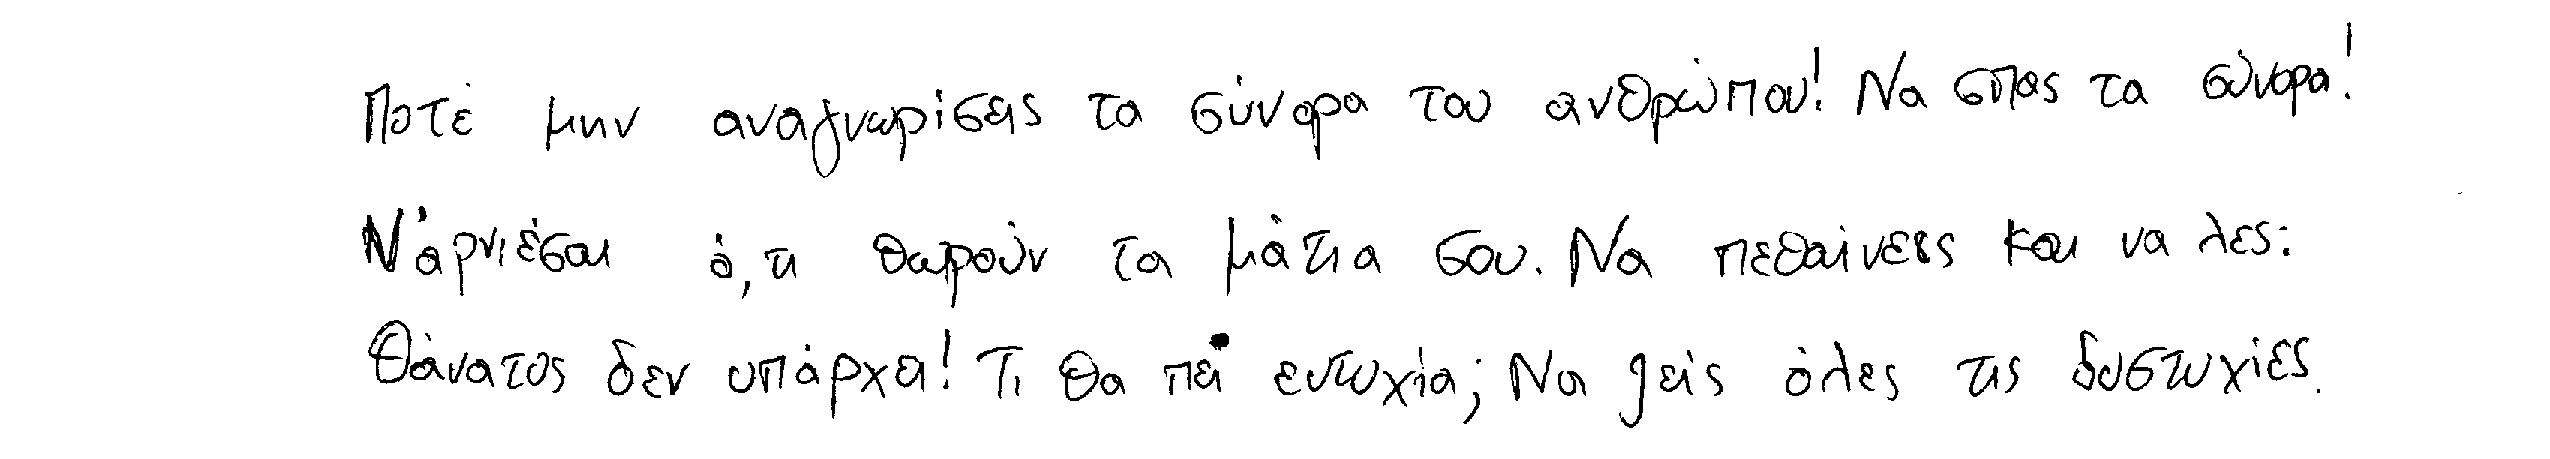 Ποτέ μην αναγνωρίσεις τα σύνορα του ανθρώπου! Να σπας τα σύνορα!
Ν' αρνιέσαι ό,τι θωρούν τα μάτια σου. Να πεθαίνεις και να λες:
Θάνατος δεν υπάρχει! Τι θα πει ευτυχία; Να ζεις όλες τις δυστυχίες.